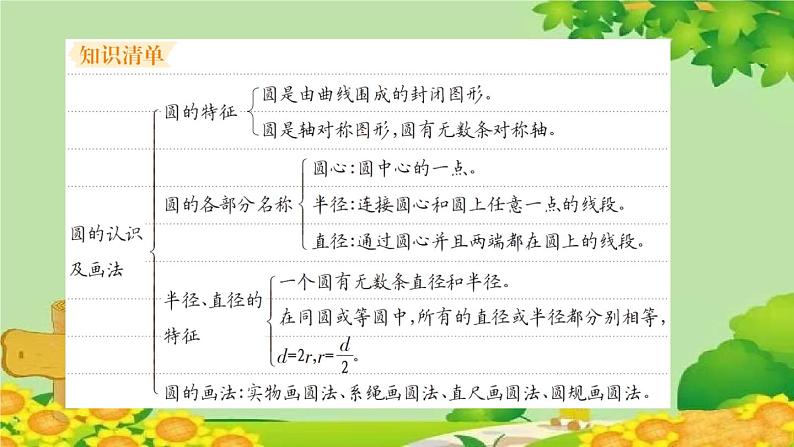 知识清单
圆的认识及画法
圆的特征
圆是由曲线围成的封闭图形。
圆是轴对称图形,圆有无数条对称轴。
圆的各部分名称
圆心:圆中心的一点。
半径:连接圆心和圆上任意一点的线段。
直径:通过圆心并且两端都在圆上的线段。
半径、直径的特征
一个圆有无数条直径和半径。
在同圆或等圆中,所有的直径或半径都分别相等,
d=2r,r=d/2。
圆的画法:实物画圆法、系绳画圆法、直尺画圆法、圆规画圆法。